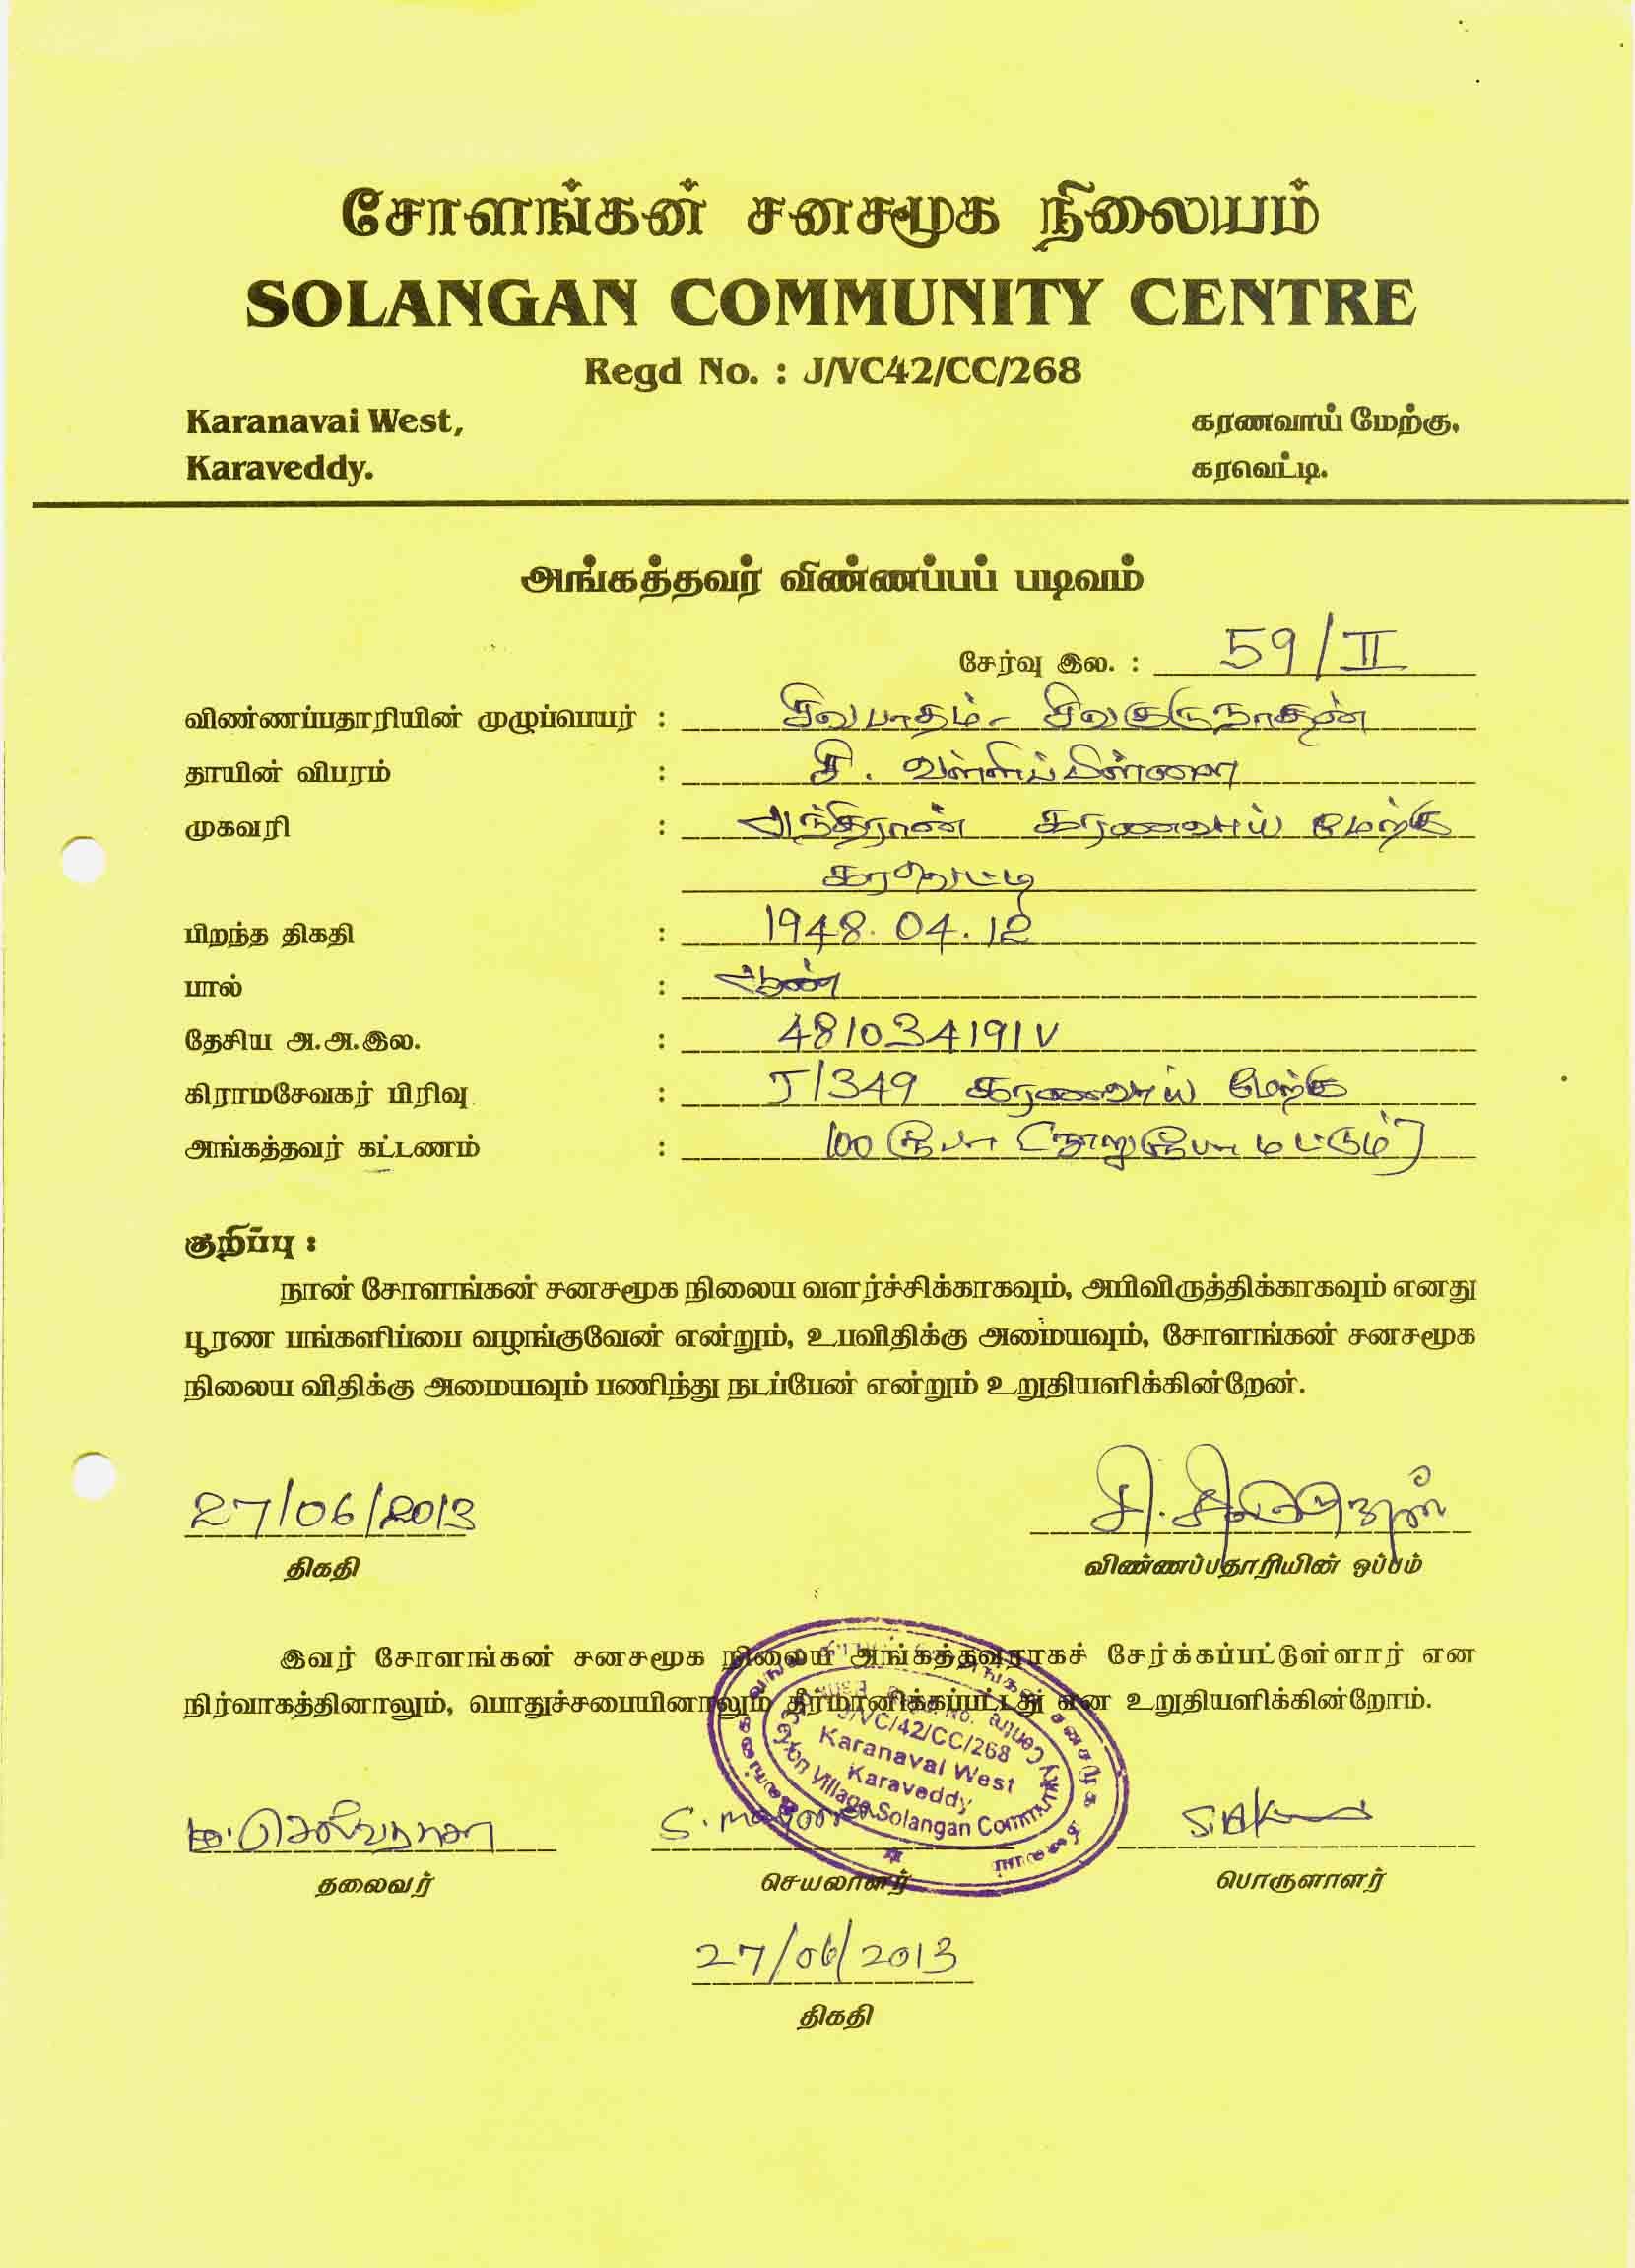 சோளங்கன் சனசமூக நிலையம்
SOLANGAN COMMUNITY CENTRE
Regd No. : J/VC42/CC/268
Karanavai West, கரணவாய் மேற்கு,
Karaveddy. கரவெட்டி.
அங்கத்தவர் விண்ணப்பப் படிவம்
சேர்வு இல. : 59/II
விண்ணப்பதாரியின் முழுப்பெயர் : சிவபாதம் - சிவகுருநாதன்
தாயின் விபரம் : சி. வள்ளிப்பிள்ளை
முகவரி : அந்திரான் கரணவாய் மேற்கு
கரவெட்டி
பிறந்த திகதி : 1948.04.12
பால் : ஆண்
தேசிய அ.அ.இல. : 481034191V
கிராமசேவகர் பிரிவு : J/349 கரணவாய் மேற்கு
அங்கத்தவர் கட்டணம் : 100 ரூபா (நூறு ரூபா மட்டும்)
குறிப்பு :
நான் சோளங்கன் சனசமூக நிலைய வளர்ச்சிக்காகவும், அபிவிருத்திக்காகவும் எனது
பூரண பங்களிப்பை வழங்குவேன் என்றும், உபவிதிக்கு அமையவும், சோளங்கன் சனசமூக
நிலைய விதிக்கு அமையவும் பணிந்து நடப்பேன் என்றும் உறுதியளிக்கின்றேன்.
27/06/2013
திகதி விண்ணப்பதாரியின் ஒப்பம்
இவர் சோளங்கன் சனசமூக நிலைய அங்கத்தவராகச் சேர்க்கப்பட்டுள்ளார் என
நிர்வாகத்தினாலும், பொதுச்சபையினாலும் தீர்மானிக்கப்பட்டது என உறுதியளிக்கின்றோம்.
J/VC/42/CC/268
Karanavai West
Karaveddy
Village Solangan Community Centre
தலைவர் செயலாளர் பொருளாளர்
27/06/2013
திகதி